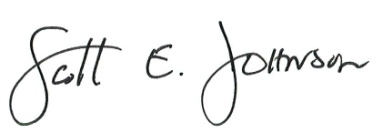 Scott E. Johnson